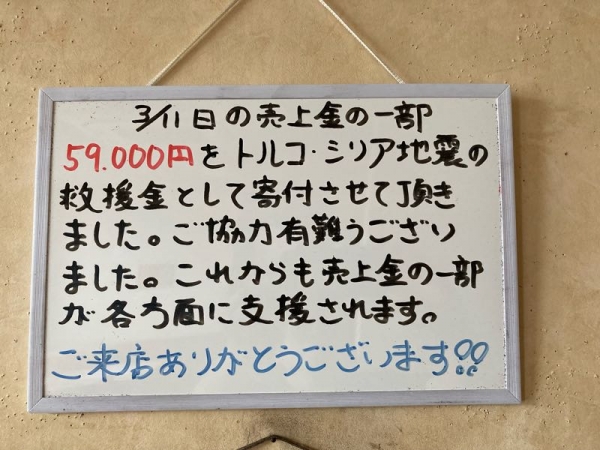 3/11日の売上金の一部
59.000円をトルコ・シリア地震の
救援金として寄付させて頂き
ました。ご協力有難うござい
ました。これからも売上金の一部
が各方面に支援されます。
ご来店ありがとうございます!!